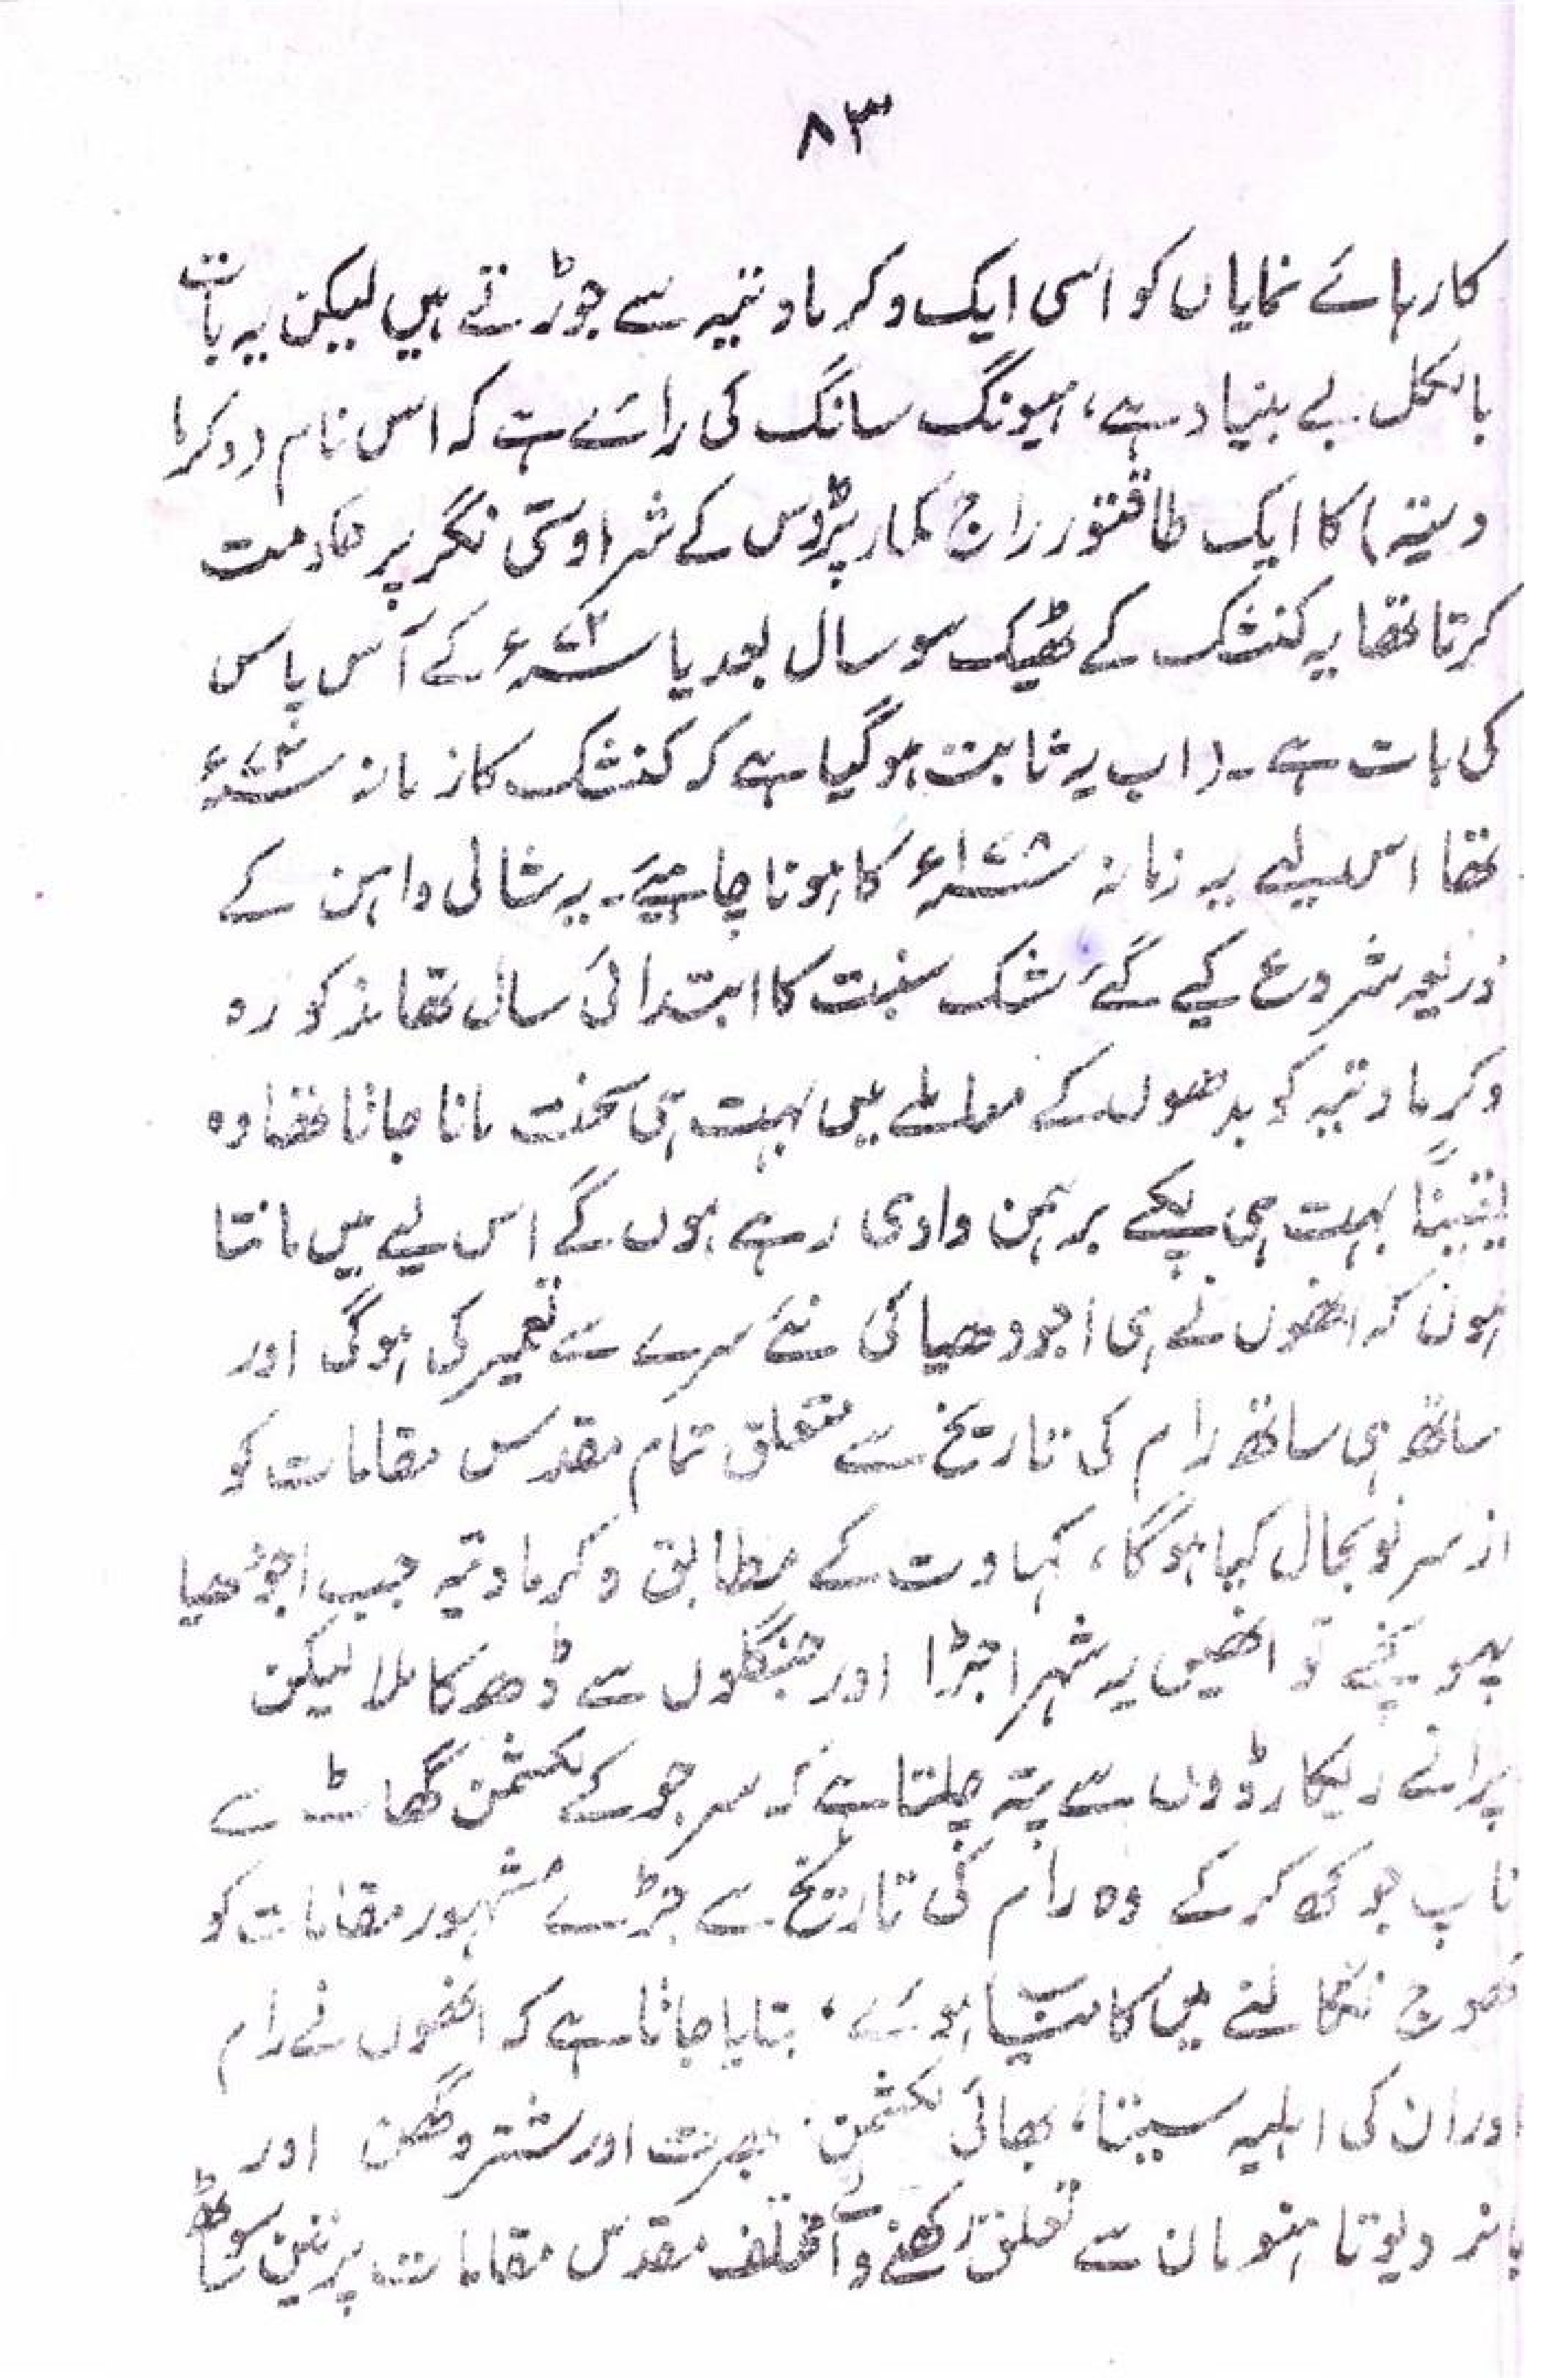 ۸۳
کارہائے نمایاں کو اسی ایک وکرمادتیہ سے جوڑتے ہیں لیکن یہ بات
بالکل بے بنیاد ہے، ہیونگ سانگ کی رائے ہے کہ اس نام (وکرما
دیتہ) کا ایک طاقتور راج کمار پڑوس کے شراوستی نگر پر حکومت
کرتا تھا یہ کنشک کے ٹھیک سو سال بعد یا ۷۸ء کے آس پاس
کی بات ہے۔ (اب یہ ثابت ہوگیا ہے کہ کنشک کا زمانہ ۷۸ء
تھا اس لیے یہ زمانہ ۱۷۸ء کا ہونا چاہیے۔ یہ شالی واہن کے
ذریعہ شروع کیے گئے شک سنبت کا ابتدائی سال تھا مذکورہ
وکرمادتیہ کو بدھوں کے معاملے میں بہت ہی سخت مانا جاتا تھا وہ
یقیناً بہت ہی پکے برہمن وادی رہے ہوں گے اس لیے میں مانتا
ہوں کہ انھوں نے ہی اجودھیا کی نئے سرے سے تعمیر کی ہوگی اور
ساتھ ہی ساتھ رام کی تاریخ سے متعلق تمام مقدس مقامات کو
از سر نو بحال کیا ہوگا، کہاوت کے مطابق وکرمادتیہ جب اجودھیا
پہونچے تو انھیں یہ شہر اجڑا اور جنگلوں سے ڈھکا ملا لیکن
پرانے ریکارڈوں سے پتہ چلتا ہے کہ سرجو کے لکشمن گھاٹ سے
ناپ جوکھ کرکے وہ رام کی تاریخ سے جڑے مشہور مقامات کو
کھوج نکالنے میں کامیاب ہوئے، بتایا جاتا ہے کہ انھوں نے رام
اور ان کی اہلیہ سیتا، بھائی لکشمن، بھرت اور شتروگھن اور
بانر دیوتا ہنومان سے تعلق رکھنے والے مختلف مقدس مقامات پر تین سو ساٹھ